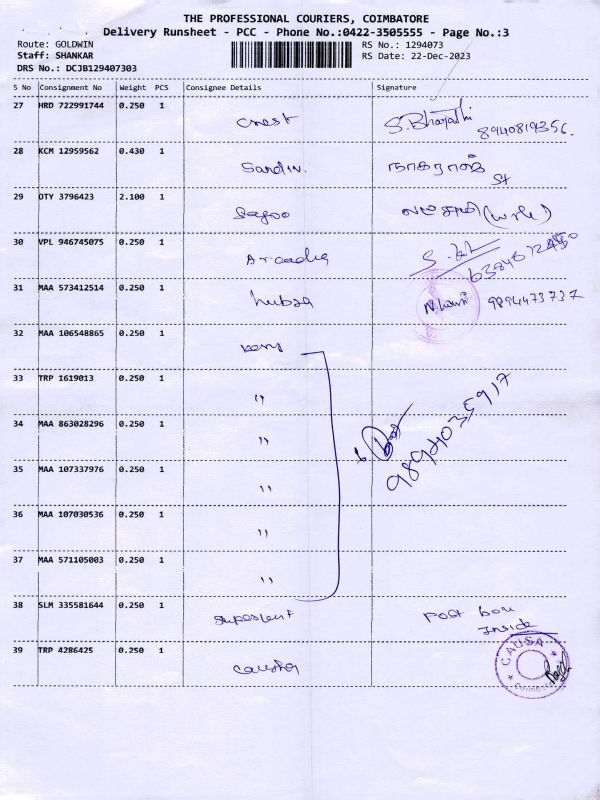 THE PROFESSIONAL COURIERS, COIMBATORE
Delivery Runsheet - PCC - Phone No.:0422-3505555 - Page No.:3
Route: GOLDWIN RS No.: 1294073
Staff: SHANKAR RS Date: 22-Dec-2023
DRS No.: DCJB129407303
S No Consignment No Weight PCS Consignee Details Signature
27 HRD 722991744 0.250 1
Crest S. Bharathi 8940819356.
28 KCM 12959562 0.430 1
Sardin நாகராஜ்
29 OTY 3796423 2.100 1
Sagoo
30 VPL 946745075 0.250 1
Arcadia
31 MAA 573412514 0.250 1
hubza 9894473737
32 MAA 106548865 0.250 1
33 TRP 1619013 0.250 1
"
34 MAA 863028296 0.250 1
"
35 MAA 107337976 0.250 1
"
36 MAA 107030536 0.250 1
"
37 MAA 571105003 0.250 1
"
38 SLM 335581644 0.250 1
Post box
Inside
39 TRP 4286425 0.250 1
CAUSA